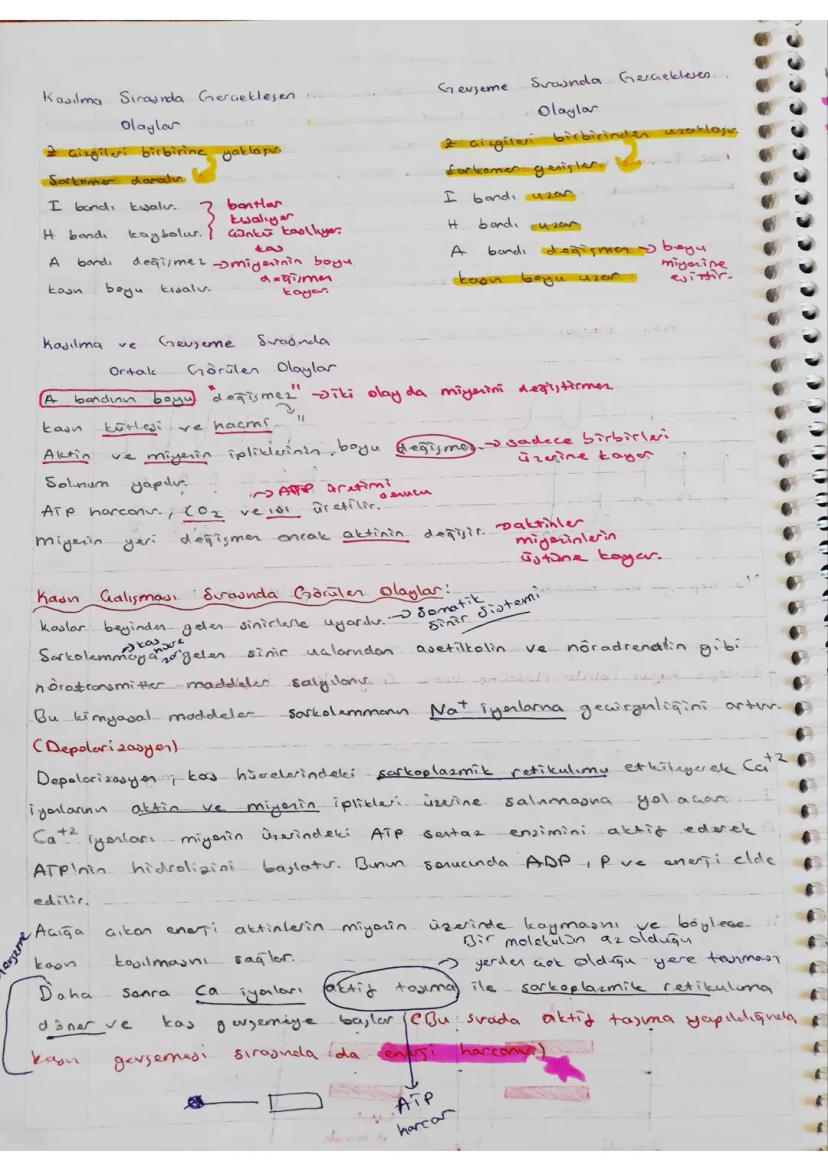 Kasılma Sırasında Gerçekleşen
Olaylar
Z çizgileri birbirine yaklaşır
Sarkomer daralır
I bandı kısalır.
H bandı kaybolur.
bantlar
kısalıyor
çünkü kasılıyor.
kas
A bandı değişmez → miyozinin boyu
değişmez
kayar.
kasın boyu kısalır
Gevşeme Sırasında Gerçekleşen
Olaylar
Z çizgileri birbirinden uzaklaşır
Sarkomer genişler.
I bandı uzar
H bandı uzar
A bandı değişmez → boyu
miyozine
eşittir.
kasın boyu uzar
Kasılma ve Gevşeme Sırasında
Ortak Görülen Olaylar
A bandının boyu "değişmez" → iki olay da miyozini değiştirmez
kasın kütlesi ve hacmi "
Aktin ve miyozin ipliklerinin boyu değişmez. → sadece birbirleri
üzerine kayar
Solunum yapılır.
→ ATP üretimi
sonucu
ATP harcanır, CO2 ve ısı üretilir.
miyozin yeri değişmez ancak aktinin değişir. → aktinler
miyozinlerin
üstüne kayar.
Kasın Çalışması Sırasında Görülen Olaylar:
kaslar beyinden gelen sinirlerle uyarılır. → Somatik
sinir sistemi
→ kas
hücre
zarı
Sarkolemmaya gelen sinir uçlarından asetilkolin ve nöradrenalin gibi
nörotransmitter maddeler salgılanır.
Bu kimyasal maddeler sarkolemmanın Na+ iyonlarına geçirgenliğini artırır.
(Depolarizasyon)
Depolarizasyon, kas hücrelerindeki sarkoplazmik retikulumu etkileyerek Ca+2
iyonlarının aktin ve miyozin iplikleri üzerine salınmasına yol açar.
Ca+2 iyonları miyozin üzerindeki ATP sentaz enzimini aktif ederek
ATP'nin hidrolizini başlatır. Bunun sonucunda ADP, P ve enerji elde
edilir.
Açığa çıkan enerji aktinlerin miyozin üzerinde kaymasını ve böylece
kasın kasılmasını sağlar.
→ Bir molekülün az olduğu
yerden çok olduğu yere taşınması
Daha sonra Ca iyonları aktif taşıma ile sarkoplazmik retikuluma
döner ve kas gevşemeye başlar (Bu sırada aktif taşıma yapıldığında
kasın gevşemesi sırasında da enerji harcanır)
ATP
harcar